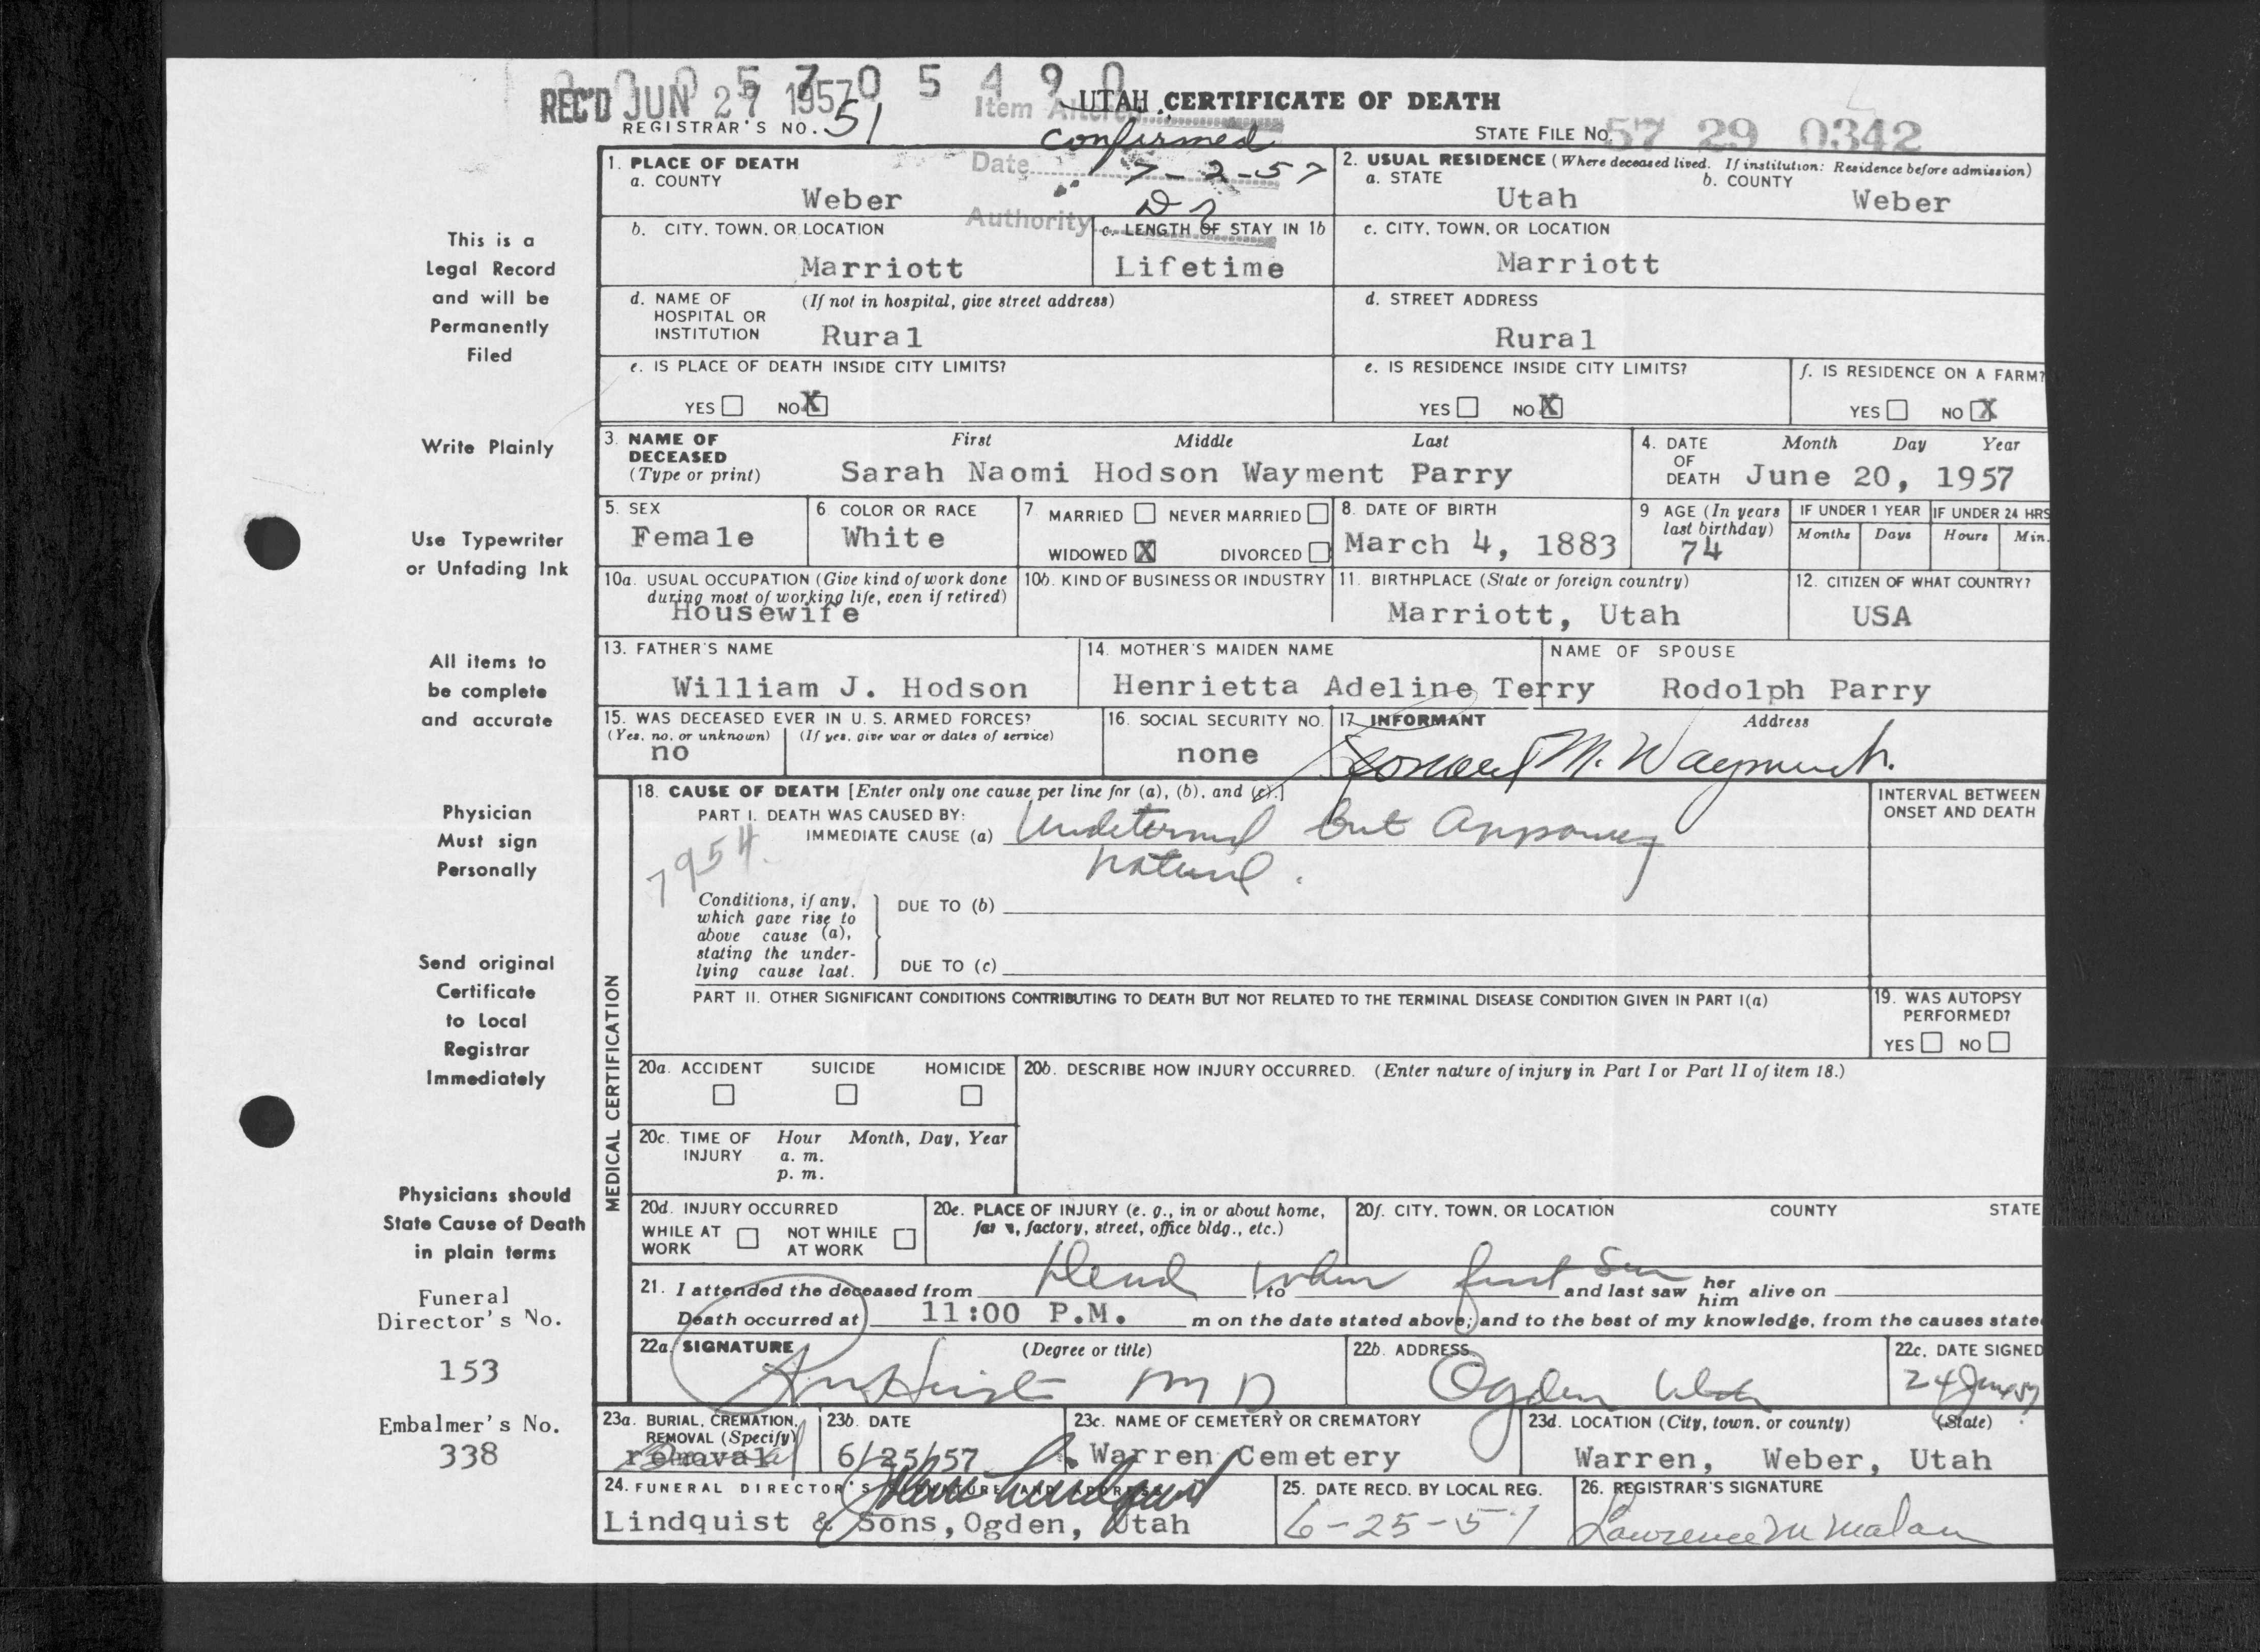 0 0 0 5 7 0 5 4 9 0
REC'D JUN 27 1957
UTAH CERTIFICATE OF DEATH
REGISTRAR'S NO. 51
Item Altered
confirmed
STATE FILE No. 57 29 0342
Date 7-2-57
Authority
1. PLACE OF DEATH
a. COUNTY
Weber
2. USUAL RESIDENCE (Where deceased lived. If institution: Residence before admission)
a. STATE
Utah
b. COUNTY
Weber
b. CITY, TOWN, OR LOCATION
Marriott
c. LENGTH OF STAY IN 1b
Lifetime
c. CITY, TOWN, OR LOCATION
Marriott
d. NAME OF HOSPITAL OR INSTITUTION
(If not in hospital, give street address)
Rural
d. STREET ADDRESS
Rural
e. IS PLACE OF DEATH INSIDE CITY LIMITS?
YES NO X
e. IS RESIDENCE INSIDE CITY LIMITS?
YES NO X
f. IS RESIDENCE ON A FARM?
YES NO X
3. NAME OF DECEASED (Type or print)
First Middle Last
Sarah Naomi Hodson Wayment Parry
4. DATE OF DEATH
Month Day Year
June 20, 1957
5. SEX
Female
6. COLOR OR RACE
White
7 MARRIED NEVER MARRIED
WIDOWED X DIVORCED
8. DATE OF BIRTH
March 4, 1883
9 AGE (In years last birthday)
74
IF UNDER 1 YEAR
Months Days
IF UNDER 24 HRS
Hours Min.
10a. USUAL OCCUPATION (Give kind of work done during most of working life, even if retired)
Housewife
10b. KIND OF BUSINESS OR INDUSTRY
11. BIRTHPLACE (State or foreign country)
Marriott, Utah
12. CITIZEN OF WHAT COUNTRY?
USA
13. FATHER'S NAME
William J. Hodson
14. MOTHER'S MAIDEN NAME
Henrietta Adeline Terry
NAME OF SPOUSE
Rodolph Parry
15. WAS DECEASED EVER IN U.S. ARMED FORCES?
(Yes, no, or unknown) (If yes, give war or dates of service)
no
16. SOCIAL SECURITY NO.
none
17 INFORMANT Address
M. Wayment
MEDICAL CERTIFICATION
18. CAUSE OF DEATH [Enter only one cause per line for (a), (b), and (c).]
INTERVAL BETWEEN ONSET AND DEATH
PART I. DEATH WAS CAUSED BY:
IMMEDIATE CAUSE (a) but
natural.
7954
Conditions, if any, which gave rise to above cause (a), stating the underlying cause last.
DUE TO (b)
DUE TO (c)
PART II. OTHER SIGNIFICANT CONDITIONS CONTRIBUTING TO DEATH BUT NOT RELATED TO THE TERMINAL DISEASE CONDITION GIVEN IN PART I(a)
19. WAS AUTOPSY PERFORMED?
YES NO
20a. ACCIDENT SUICIDE HOMICIDE
20b. DESCRIBE HOW INJURY OCCURRED. (Enter nature of injury in Part I or Part II of item 18.)
20c. TIME OF INJURY
Hour Month, Day, Year
a. m.
p. m.
20d. INJURY OCCURRED
WHILE AT WORK NOT WHILE AT WORK
20e. PLACE OF INJURY (e. g., in or about home, farm, factory, street, office bldg., etc.)
20f. CITY, TOWN, OR LOCATION COUNTY STATE
21. I attended the deceased from Dead , to when first seen and last saw her him alive on
Death occurred at 11:00 P.M. m on the date stated above; and to the best of my knowledge, from the causes state
22a. SIGNATURE (Degree or title)
M D
22b. ADDRESS
Ogden Utah
22c. DATE SIGNED
24 June 57
23a. BURIAL, CREMATION, REMOVAL (Specify)
removal
Burial
23b. DATE
6/25/57
23c. NAME OF CEMETERY OR CREMATORY
Warren Cemetery
23d. LOCATION (City, town, or county) (State)
Warren, Weber, Utah
24. FUNERAL DIRECTOR'S SIGNATURE AND ADDRESS
Lindquist & Sons, Ogden, Utah
25. DATE RECD. BY LOCAL REG.
6-25-57
26. REGISTRAR'S SIGNATURE
Lawrence M Malan
This is a
Legal Record
and will be
Permanently
Filed
Write Plainly
Use Typewriter
or Unfading Ink
All items to
be complete
and accurate
Physician
Must sign
Personally
Send original
Certificate
to Local
Registrar
Immediately
Physicians should
State Cause of Death
in plain terms
Funeral
Director's No.
153
Embalmer's No.
338